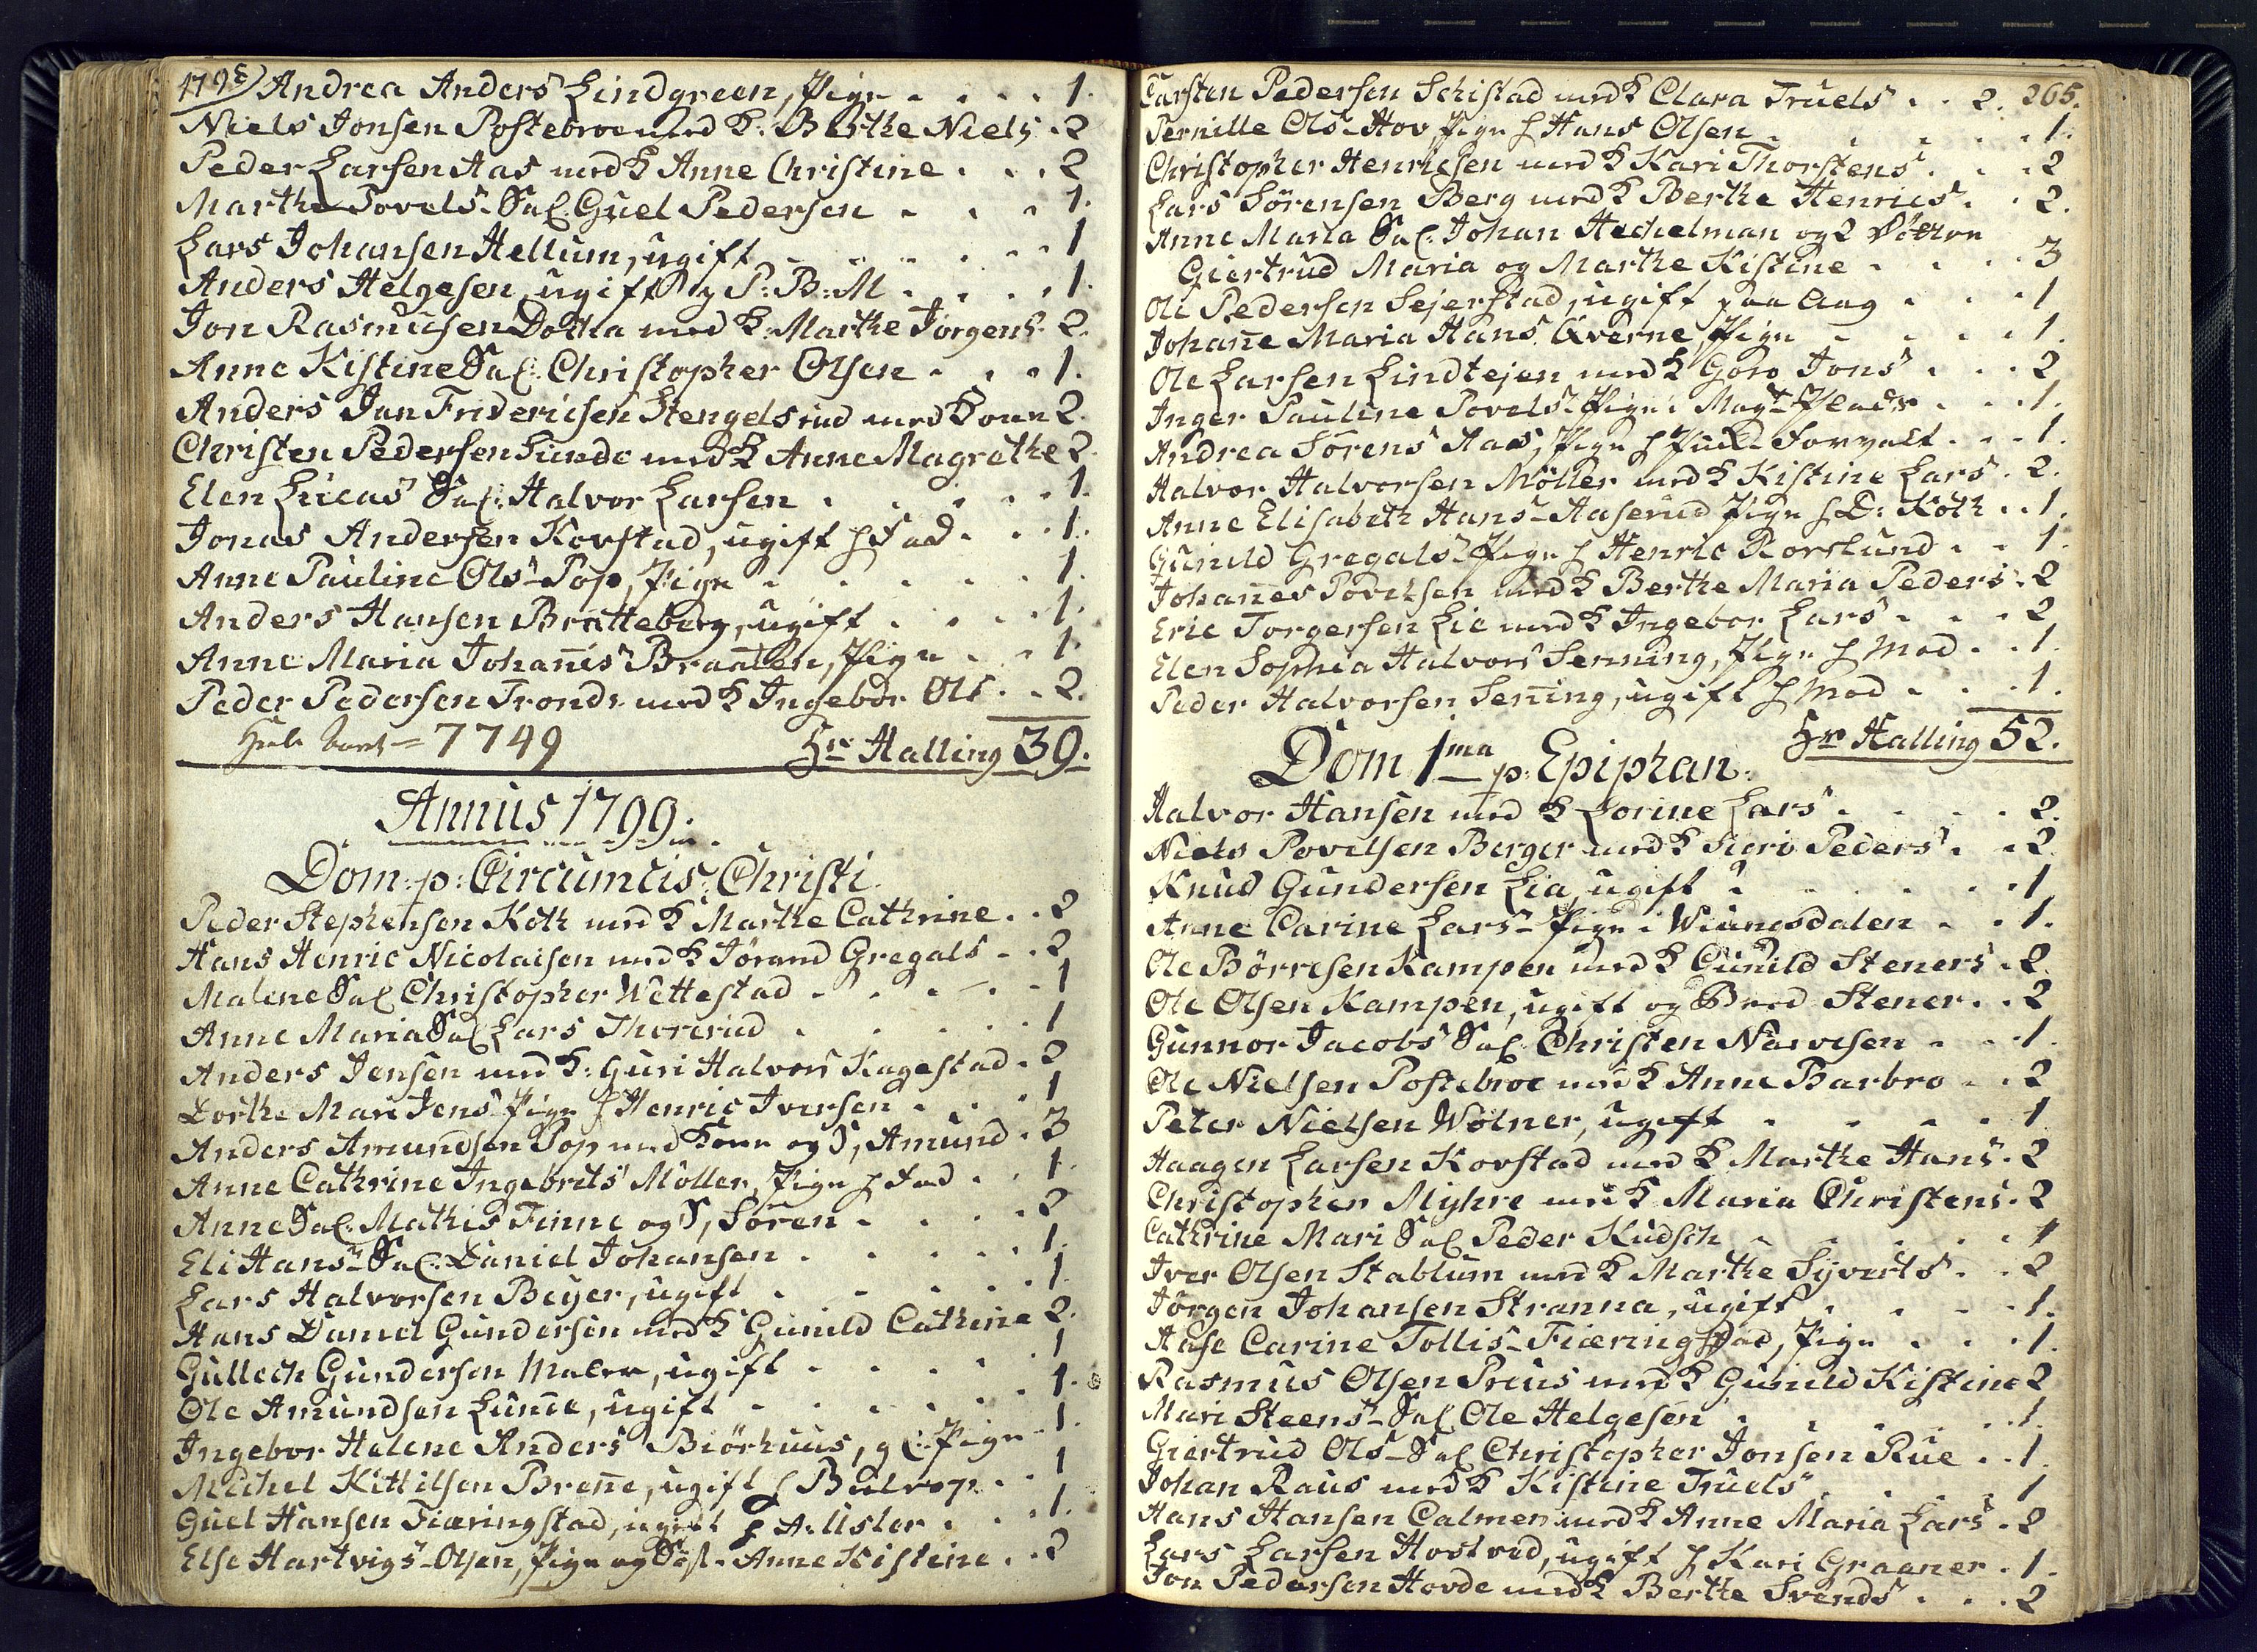 1798) Andrea Anders Lindgreen, Pige . . . . 1.
Niels Jonsen Postebroe med K: Berthe Niels . 2
Peder Larsen Aas med K Anne Christine . . . 2
Marthe Povels Sal: Guel Pedersen . . . 1.
Lars Johansen Hellum, ugift . . . . . 1
Anders Helgesen, ugift P: B: M . . . . 1.
Jon Rasmusen Dotha med K: Marthe Jørgens 2.
Anne Kistine Sal: Christopher Olsen . . . 1.
Anders Jan Fridericsen Stengelsrud med Kone 2.
Christen Pedersen Lunde med K Anne Magrethe 2
Elen Lucas Sal: Halvor Larsen . . . . . 1.
Jonas Andersen Korstad, ugift h Fad . . . 1.
Anne Pauline Ols Pop, Pige . . . . . 1.
Anders Hansen Bratteberg, ugift . . . . 1.
Anne Maria Johanis Braaten, Pige . . . 1.
Peder Pedersen Tronds med K Ingebor Ols . . 2.
7749 Hr Halling 39.
Annus 1799.
Dom: p: Circumcis: Christi.
Peder Stephensen Koth med K Marthe Cathrine . . 2
Hans Henric Nicolaisen med K Jørand Gregals . . 2
Malene Sal Christopher Wettestad . . . . . 1
Anne Maria Sal Lars Thorerud . . . . . 1
Anders Jensen med K: Guri Halvors Kagestad . 2
Dorthe Mari Jens Pige h Henric Iversen . . . 1
Anders Amundsen Pop med Kone og S, Amund . 3
Anne Cathrine Ingebrets Møller, Pige h Fad . . 1.
Anne Sal: Mathis Finne og S, Søren . . . . 2
Eli Hans Sal: Daniel Johansen . . . . . 1.
Lars Halvorsen Beyer, ugift . . . . . 1.
Hans Daniel Gundersen med K Gunild Cathrine 2.
Gullech Gundersen Maler, ugift . . . . 1
Ole Amundsen Lunde, ugift . . . . . 1.
Ingebor Helene Anders Biörhuus, gl: Pige 1.
Michel Kittilsen Brene, ugift h Buldrop . . 1
Guel Hansen Fiæringstad, ugift h A: Usler . . . 1.
Else Hartvigs Olsen, Pige og Søst. Anne Kistine . . 2
Carsten Pedersen Schistad med K Clara Truels . . 2. 265.
Pernille Ols Hov Pige h Hans Olsen . . . . . 1.
Christopher Henricsen med K Kari Thorstens . . . 2
Lars Sörensen Berg med K Berthe Henrics . . 2.
Anne Maria Sal: Johan Hechelman og 2 Døttre
Giertrud Maria og Marthe Kistine . . . . 3
Ole Pedersen Sejerstad, ugift paa Aug . . . 1
Johane Maria Hans Qverne, Pige . . . . 1.
Ole Larsen Lindtejen med K Goro Jons . . . 2
Inger Pauline Povels Pige i Magt . . . 1.
Andrea Sörens Aas, Pige h Forvalt . . . 1.
Halvor Halvorsen Möller med K Kistine Lars . 2.
Anne Elisabeth Hans Aaserud Pige h D: Koth . . 1.
Gunild Gregals Pige h Henric Rorslund . . 1.
Johanes Povelsen med K Berthe Maria Peders . 2
Eric Torgersen Lie med K Ingebor Lars . . . 2
Elen Sophia Halvors Senning, Pige h Mod . . 1.
Peder Halvorsen Sening, ugift h Mod . . . 1.
Hr Halling 52.
Dom 1ma p: Epiphan:
Halvor Hansen med K Lorine Lars . . . . 2.
Niels Povelsen Berger med K Sigri Peders . . 2
Knud Gundersen Lia, ugift . . . . . 1
Anne Carine Lars Pige i Wiungsdalen . . . 1.
Ole Börresen Kampen med K Gunild Steners . 2
Ole Olsen Kampen, ugift og Brod Stener . . 2
Gunnor Jacobs Sal: Christen Narvesen . . . 1.
Ole Nielsen Postebroe med K Anne Barbro . . 2
Peter Nielsen Wölner, ugift . . . . . 1
Haagen Larsen Korstad med K Marthe Hans . 2
Christopher Myhre med K Maria Christens . 2
Cathrine Mari Sal Peder Kudsch . . . . 1
Iver Olsen Stablum med K Marthe Syverts . . 2
Jörgen Johansen Stranna, ugift . . . . 1.
Aase Carine Tollis Fiæringstad, Pige . . . 1.
Rasmus Olsen Preus med K Gunild Kistine 2
Mari Steens Sal Ole Helgesen . . . . 1.
Giertrud Ols Sal Christopher Jonsen Rue . . 1.
Johan Raus med K Kistine Truels . . . . 1
Hans Hansen Calmen med K Anne Maria Lars . 2
Lars Larsen Hostved, ugift h Kari Graaner . 1.
Jon Pedersen Hovde med K Berthe Svends . . . 2